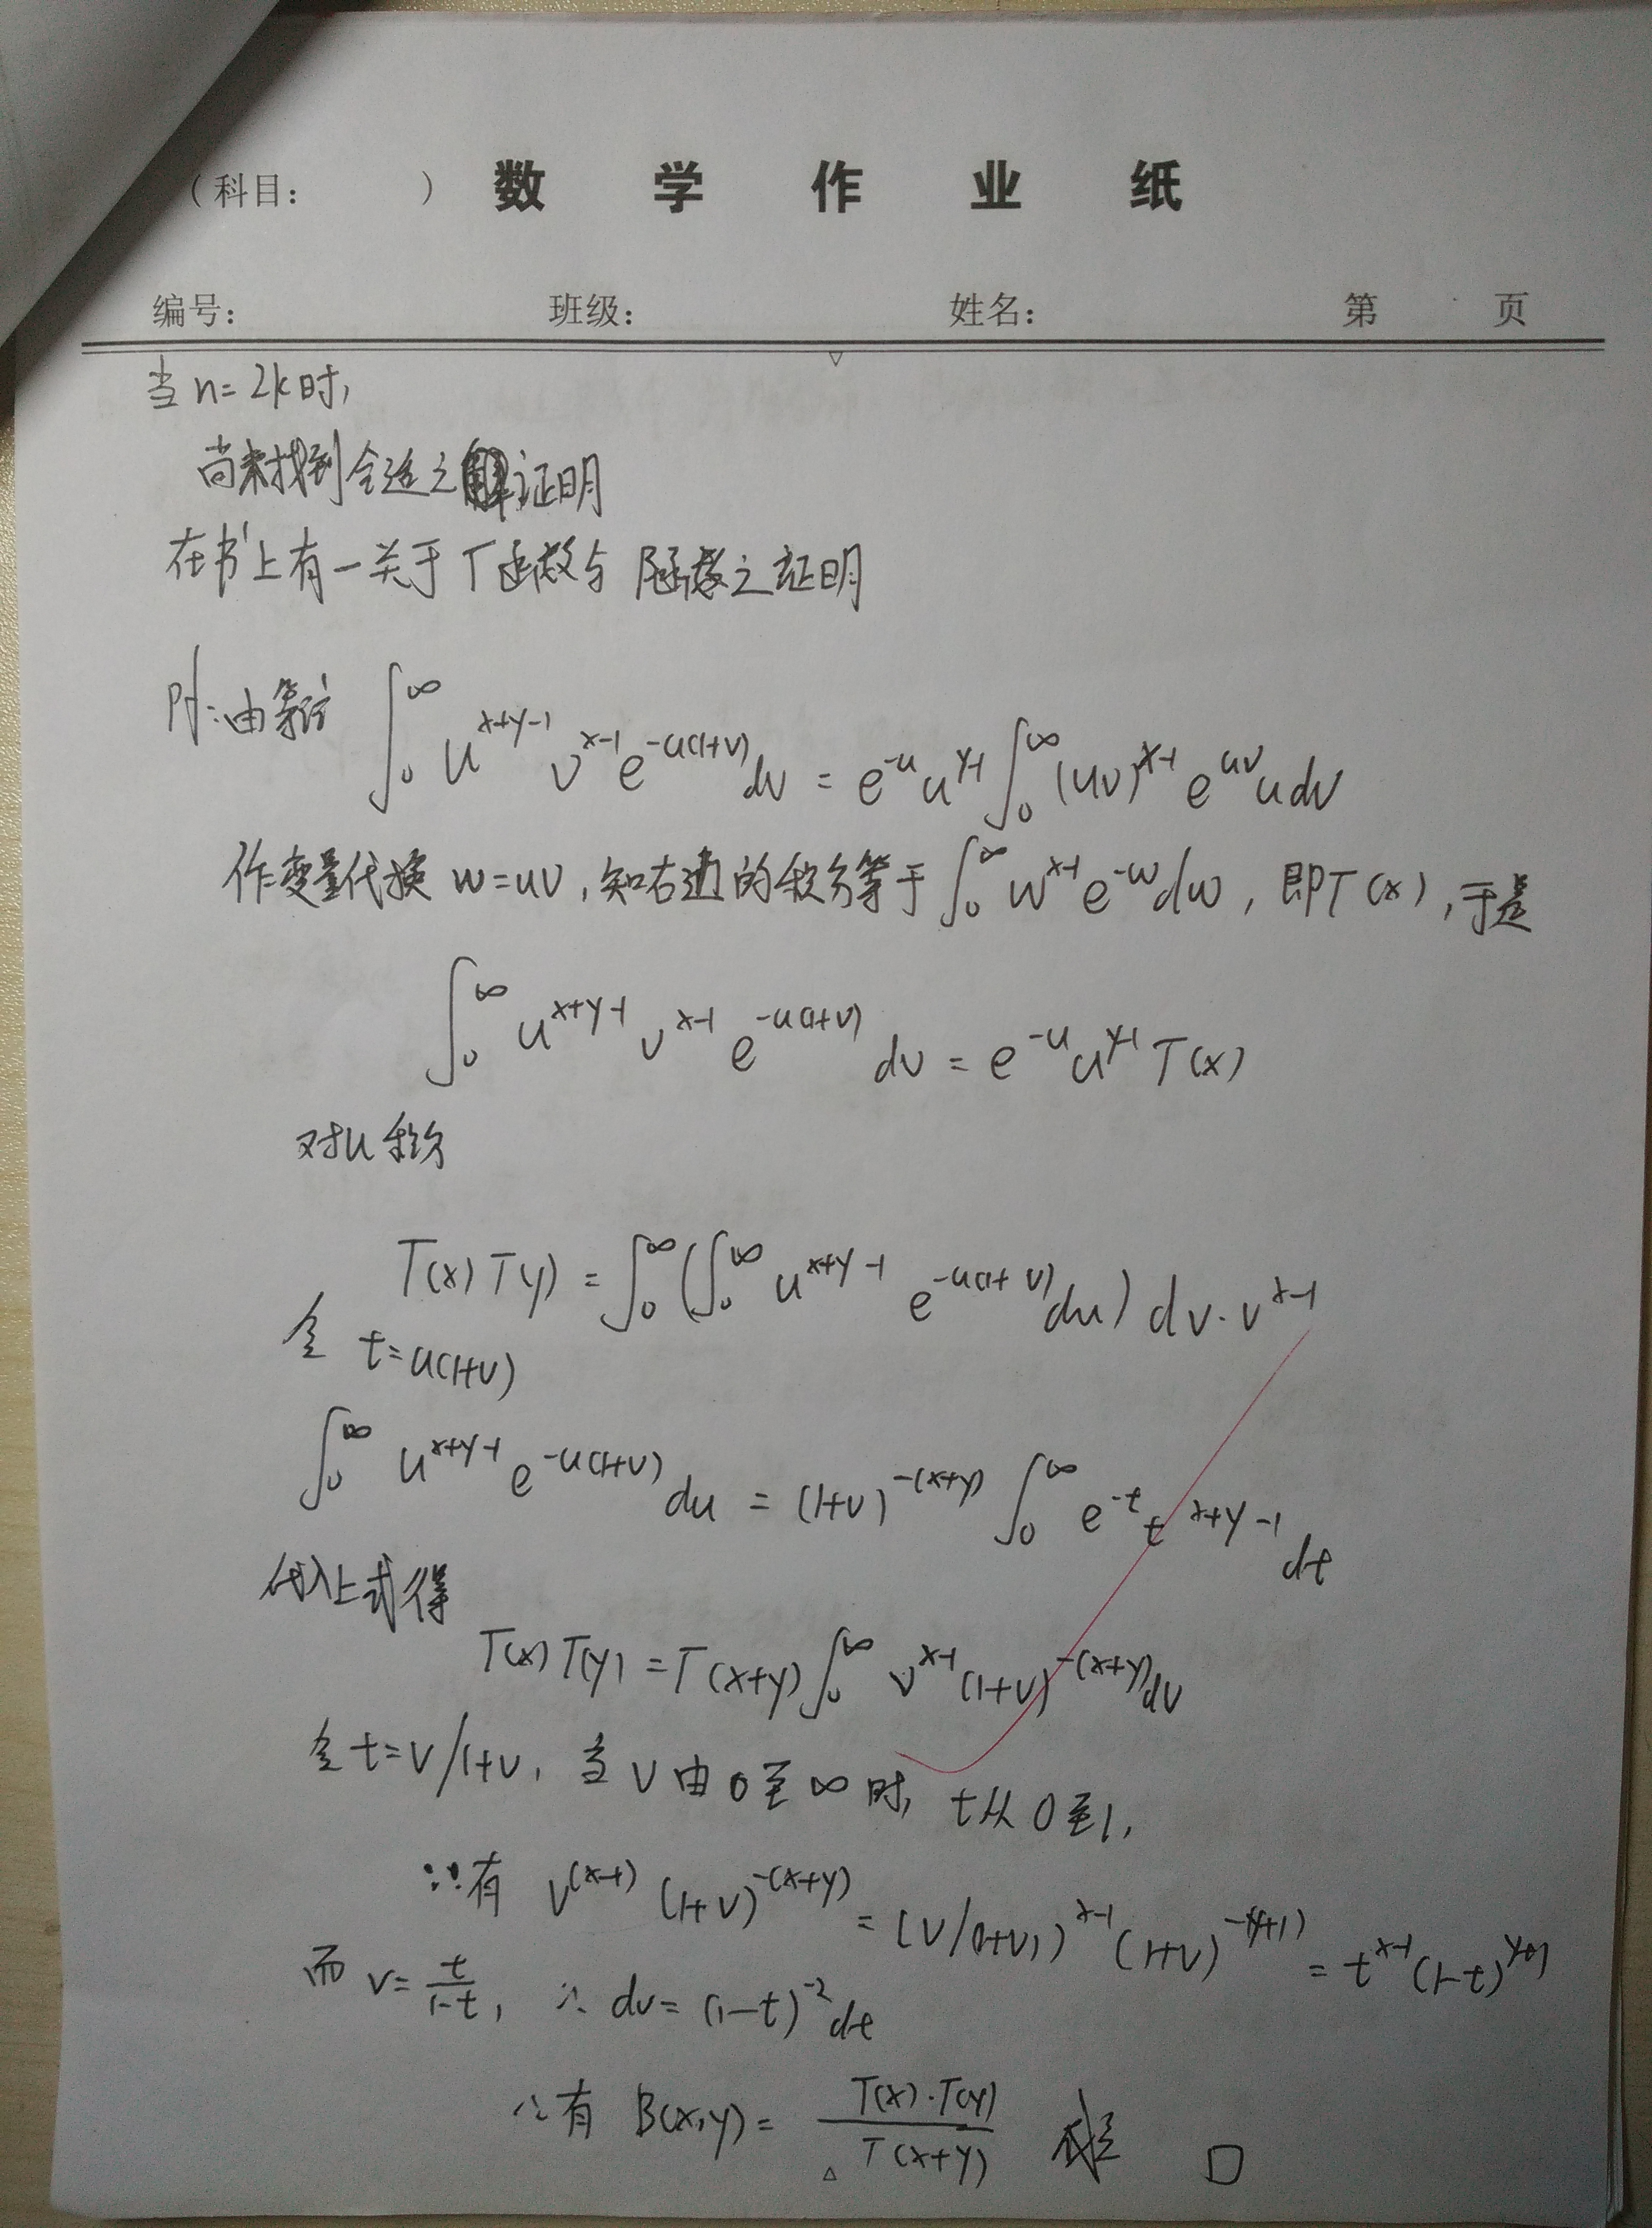 （科目： ） 数学作业纸
编号： 班级： 姓名： 第 页
当 n=2k时,
尚未找到合适之证明
在书上有一关于Γ函数与B函数之证明
Pf:由等式 ∫₀^∞ u^{x+y-1} v^{x-1} e^{-u(1+v)} dv = e^{-u} u^{y-1} ∫₀^∞ (uv)^{x-1} e^{uv} u dv
作变量代换 w=uv,知右边的积分等于 ∫₀^∞ w^{x-1} e^{-w} dw, 即Γ(x),于是
∫₀^∞ u^{x+y-1} v^{x-1} e^{-u(1+v)} dv = e^{-u} u^{y-1} Γ(x)
对u积分
Γ(x)Γ(y) = ∫₀^∞ (∫₀^∞ u^{x+y-1} e^{-u(1+v)} du) dv·v^{x-1}
令 t=u(1+v)
∫₀^∞ u^{x+y-1} e^{-u(1+v)} du = (1+v)^{-(x+y)} ∫₀^∞ e^{-t} t^{x+y-1} dt
代入上式得
Γ(x)Γ(y) = Γ(x+y) ∫₀^∞ v^{x-1} (1+v)^{-(x+y)} dv
令 t=v/1+v, 当 v 由 0 至 ∞ 时, t从 0 至1,
∴有 v^{(x-1)} (1+v)^{-(x+y)} = (v/(1+v))^{x-1} (1+v)^{-(y+1)} = t^{x-1} (1-t)^{y+1}
而 v=t/(1-t), ∴ dv=(1-t)^{-2} dt
∴有 B(x,y)= Γ(x)·Γ(y)/Γ(x+y) □